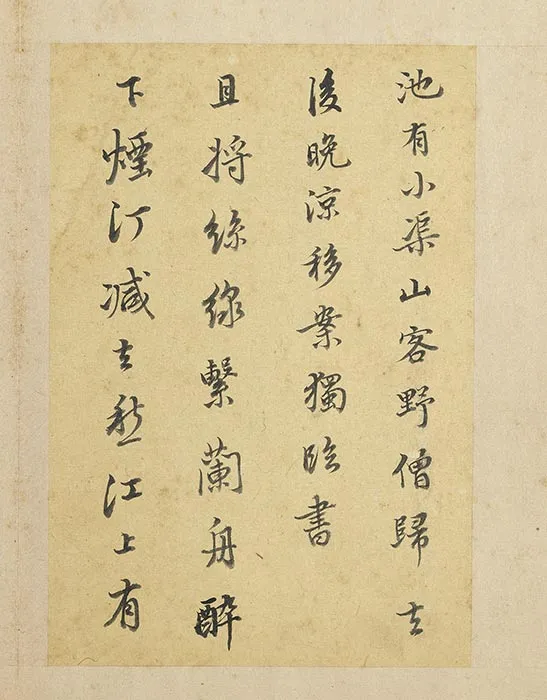 池有小渠山客野僧歸去
後晚涼移案獨臨書
且將絲線繫蘭舟醉
下煙汀減去愁江上有